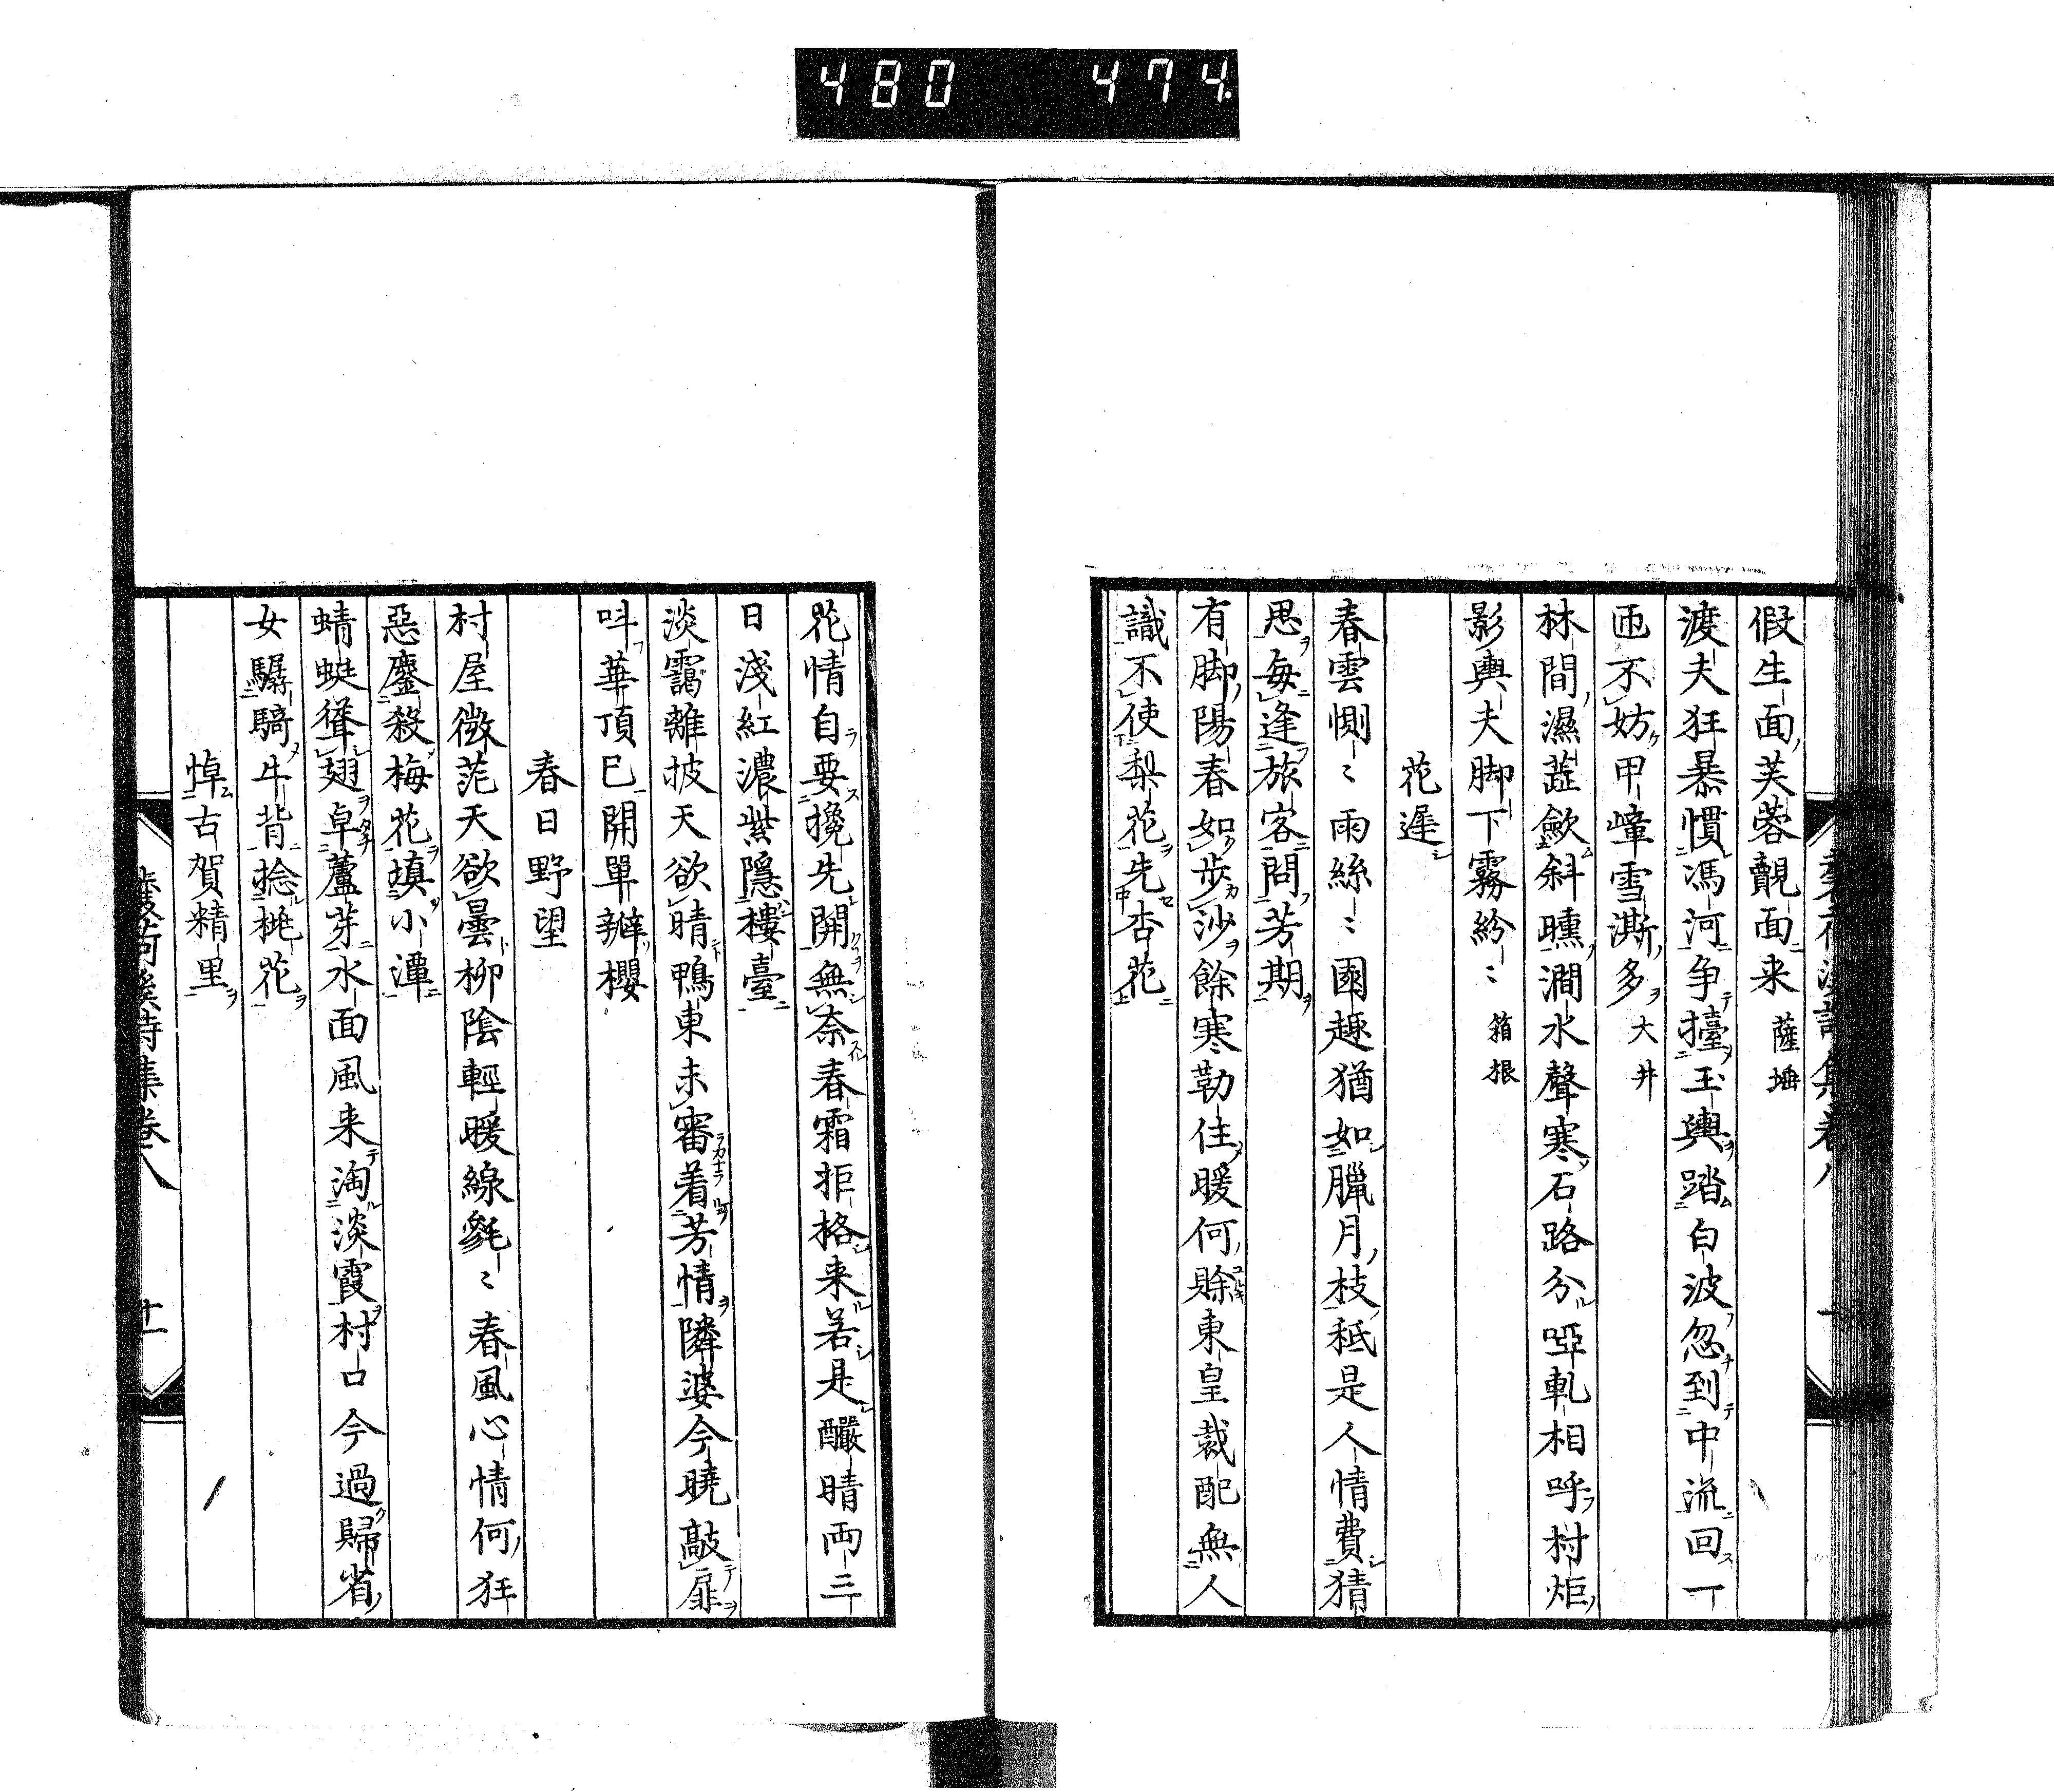 480 474
假生面芙蓉覿面来 薩埵
渡夫狂暴慣馮河争擡玉輿踏白波忽到中流回一
匝不妨甲嶂雪澌多 大井
林間濕蘂斂斜曛澗水聲寒石路分啞軋相呼村炬
影輿夫脚下霧紛〻 箱根
花遲
春雲惻〻雨絲〻園趣猶如臘月枝秪是人情費猜
思每逢旅客問芳期
有脚陽春如步沙餘寒勒住暖何賒東皇裁配無人
識不使梨花先杏花
花情自要攙先開無奈春霜拒格来若是釅晴両三
日淺紅濃紫隱樓臺
淡靄離披天欲晴鴨東未審着芳情隣婆今曉敲扉
呌華頂已開單瓣櫻
春日野望
村屋微茫天欲曇柳陰輕暖線毿〻春風心情何狂
惡鏖殺梅花塡小潭
蜻蜓聳翅卓蘆芽水面風来淘淡霞村口今過歸省
女驏騎牛背捻桃花
悼古賀精里
荷溪詩集卷八 十一